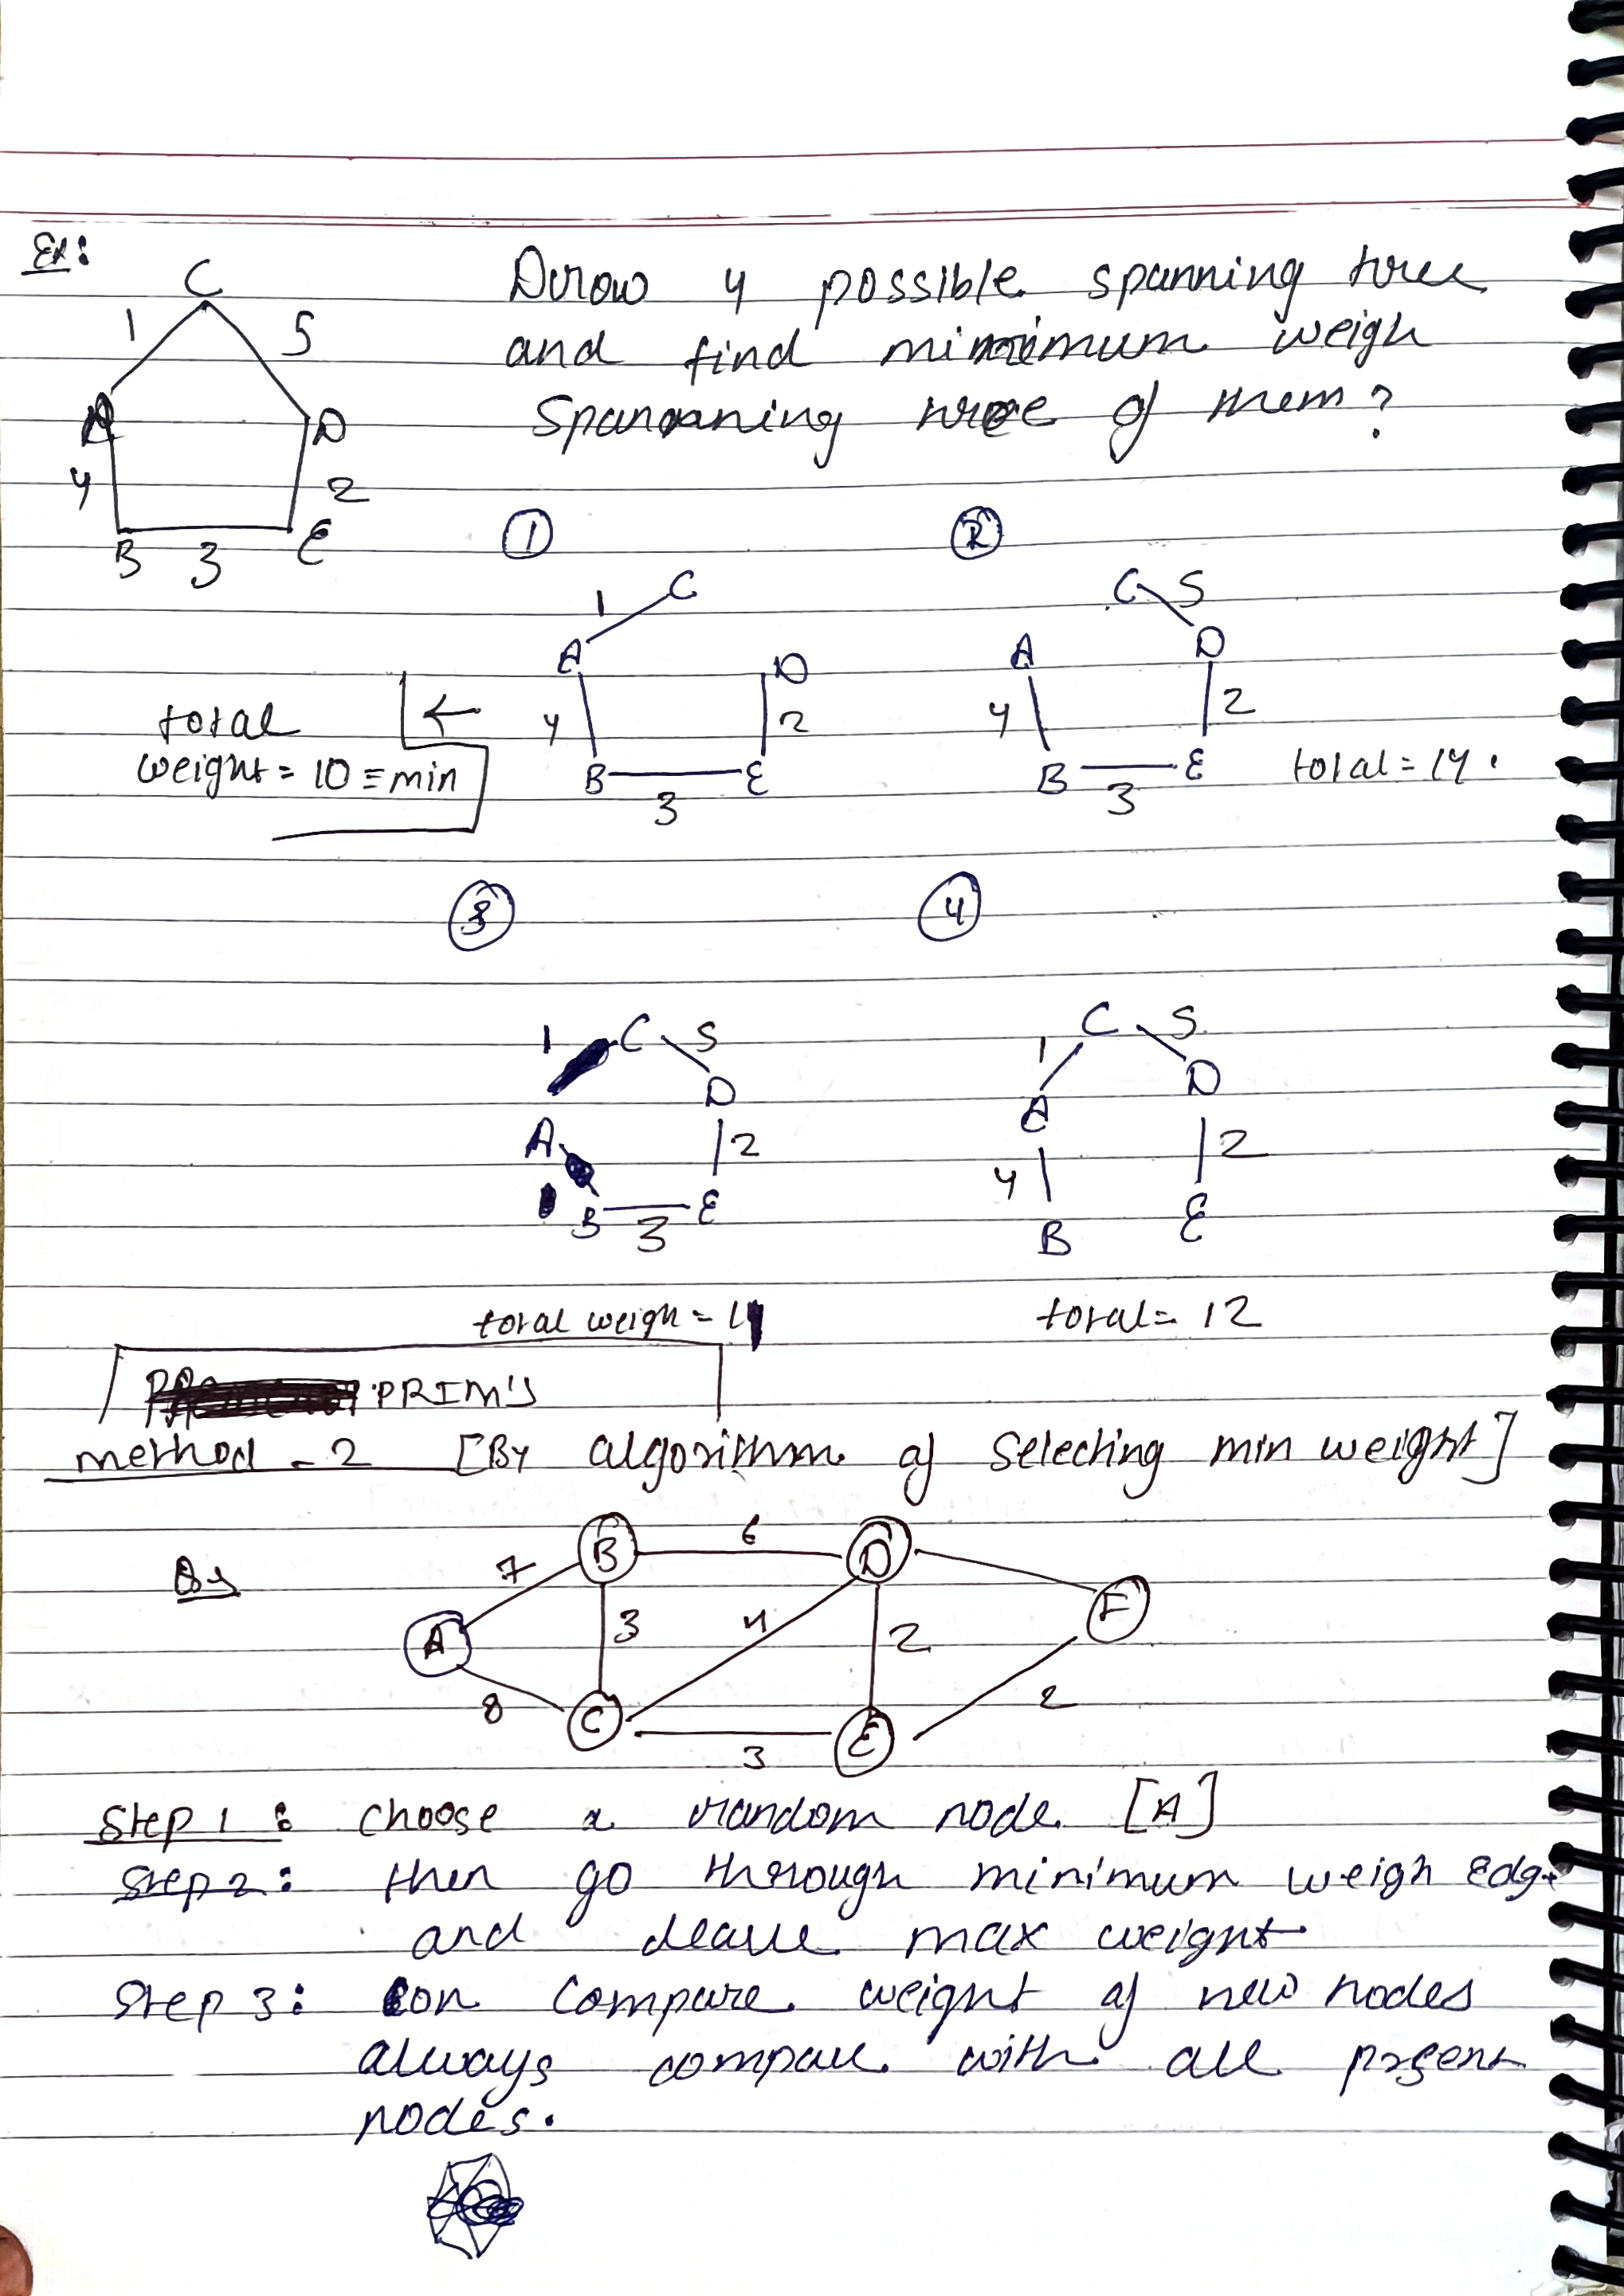 Ex:
C
1 5
A D
4 2
B 3 E
Draw 4 possible spanning tree
and find minimum weigh
Spanning tree of them?
1
1 C
A D
4 2
B 3 E
total
weight = 10 = min
2
C 5
A D
4 2
B 3 E
total = 14.
3
1 C 5
D
A 2
B 3 E
total weigh = 1
4
C 5
1 D
A
4 2
B E
total = 12
PRIM'S
method - 2 [By algorithm of selecting min weight]
Q
B 6 D
7
A 3 4 2 F
8 2
C 3 E
Step 1: choose a random node [A]
Step 2: then go through minimum weigh edge
and leave max weight
Step 3: on compare weight of new nodes
always compare with all prsent
nodes.